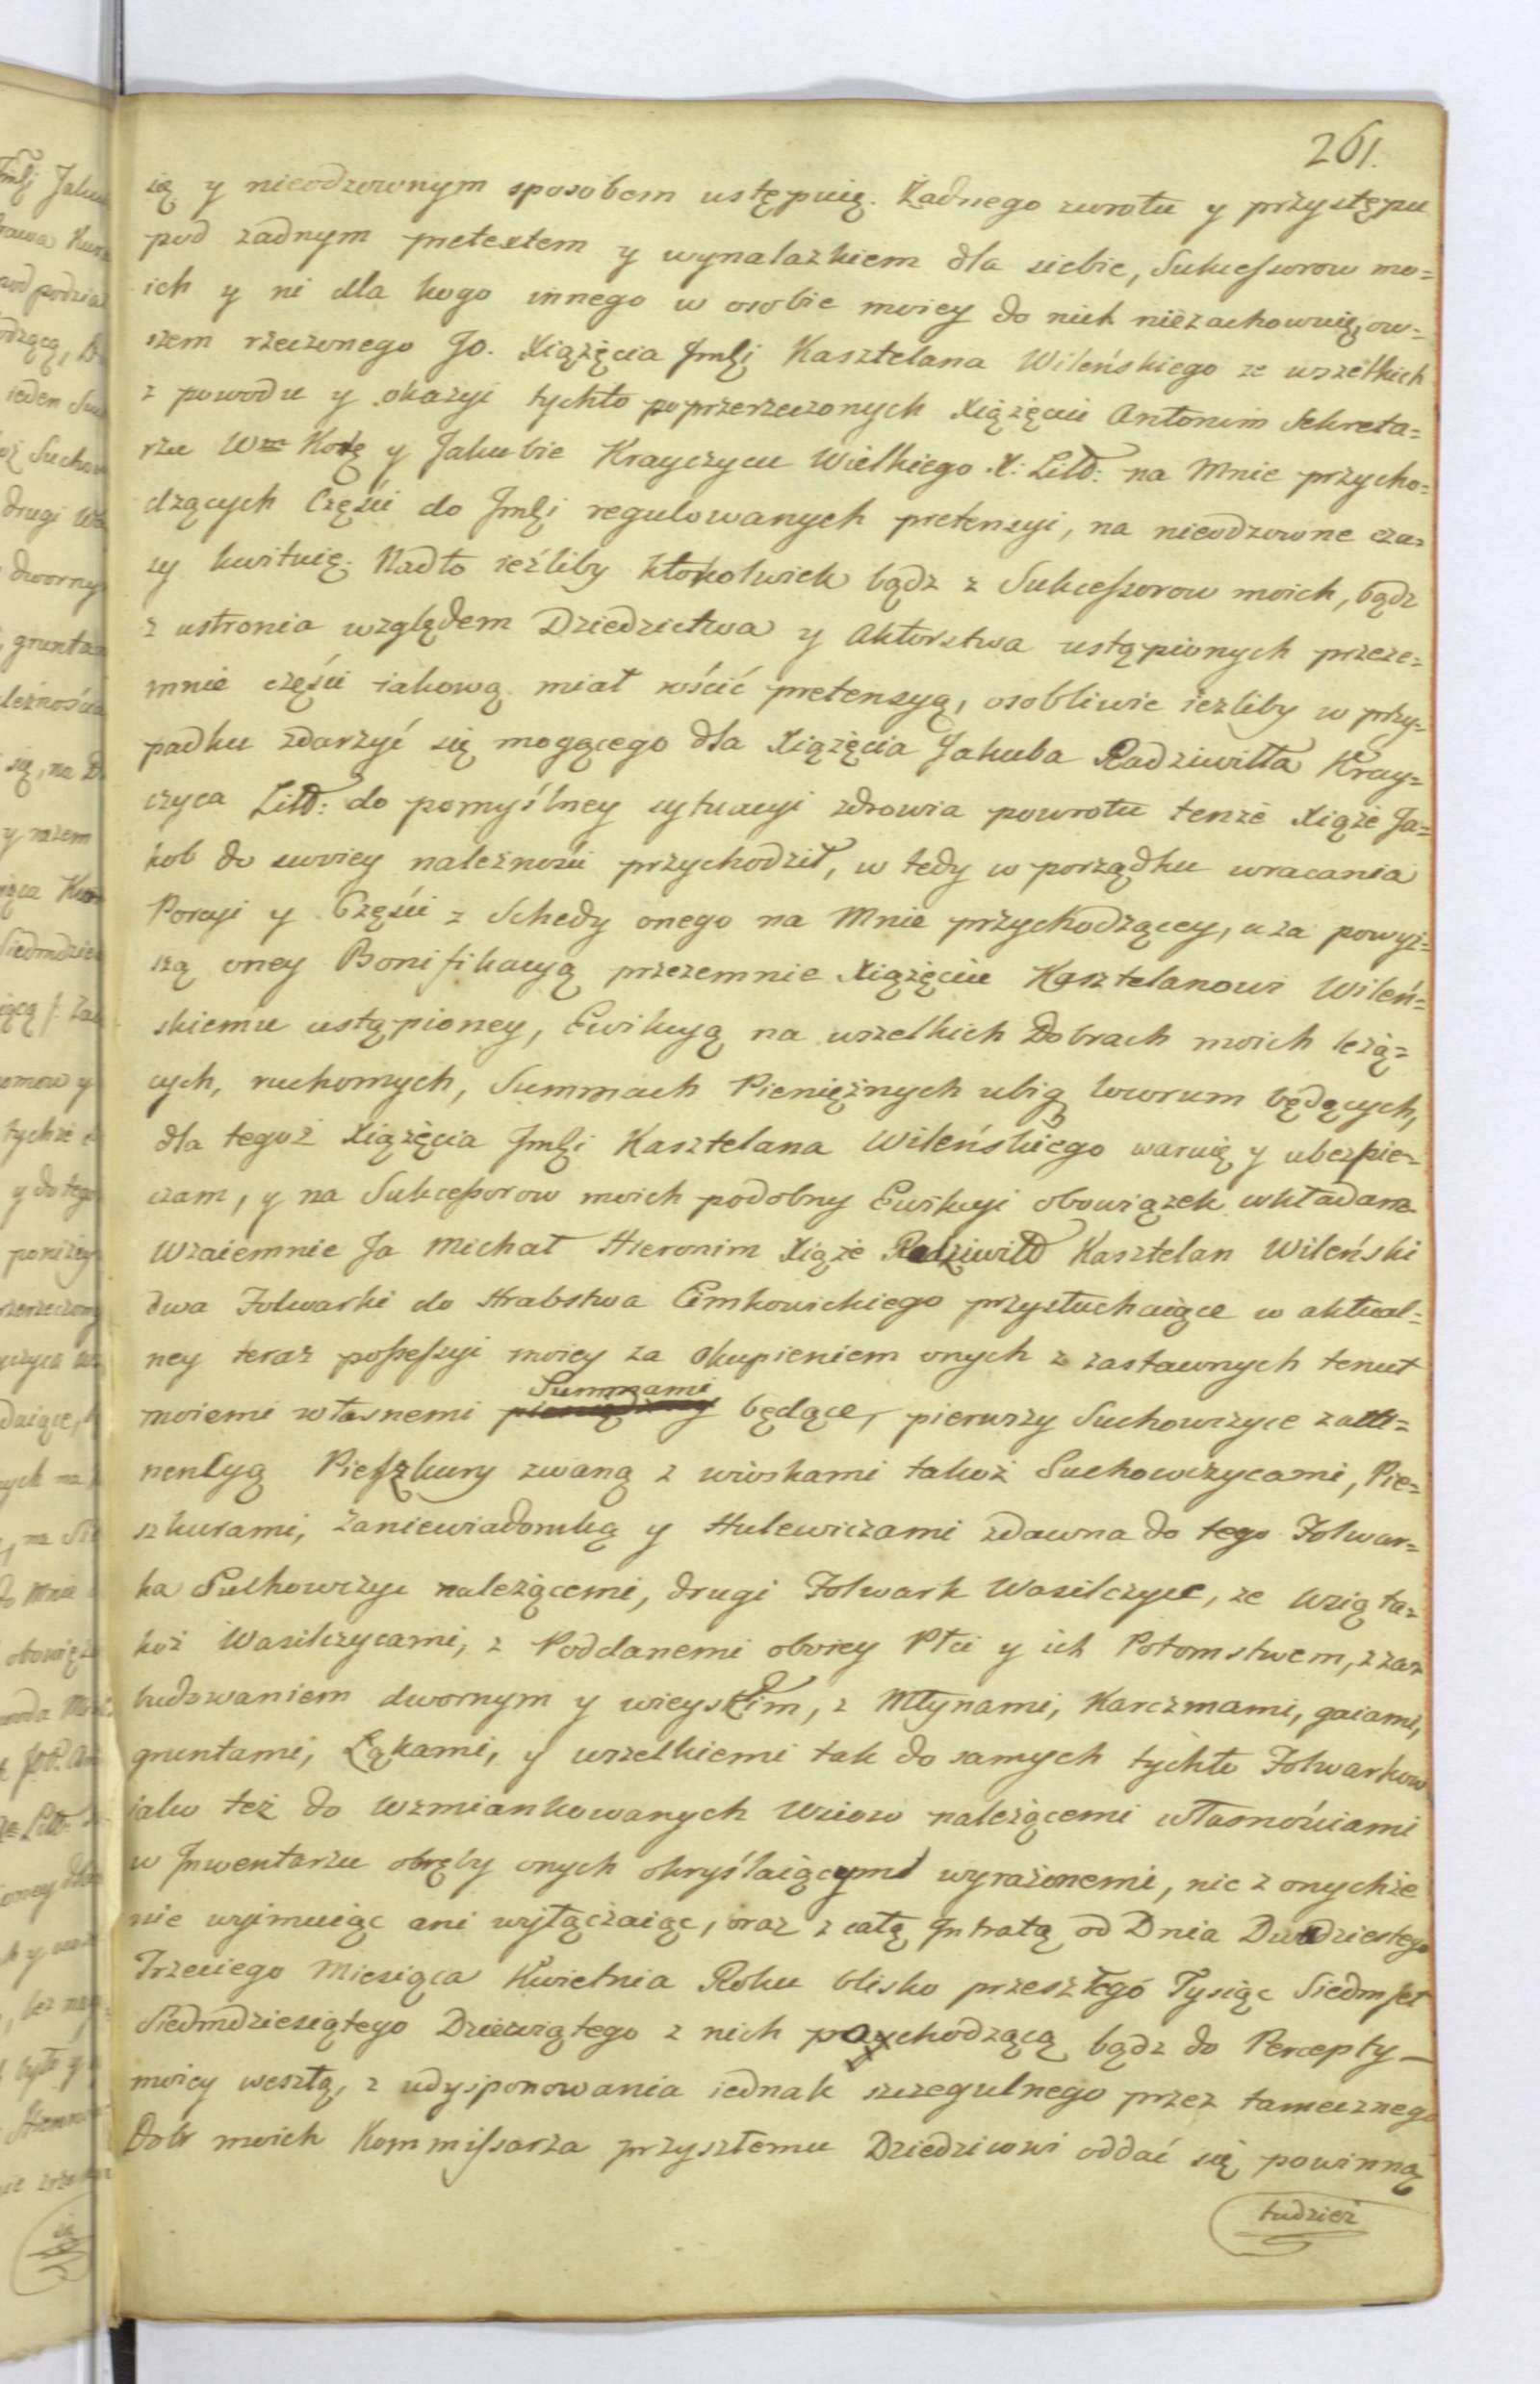 261.
się y nieodzownym sposobem ustępuię. Żadnego zwrotu y przystępu
pod zadnym pretextem y wynalazkiem dla siebie, Sukcessorow mo=
ich y ni dla kogo innego w osobie moiey do nich niezachowuię, ow=
szem rzeczonego Jo. Xiążęcia Jmści Kasztelana Wileńskiego ze wszelkich
z powodu y okazyi tychto poprzerzeczonych Xiążęciu Antonim Sekreta=
rzu Wm y Jakubie Krayczycu Wielkiego X: Litt: na Mnie przycho=
dzących Części do Jmści regulowanych pretensyi, na nieodzowne cza=
sy kwituię. Nadto ieźliby ktokolwiek bądz z Sukcessorow moich, bądz
z ustronia względem Dziedzictwa y Aktorstwa ustąpionych przeze=
mnie części iakową miał rościć pretensyą, osobliwie ieźliby w przy=
padku zdarzyć się mogącego dla Xiążęcia Jakuba Radziwiłła Kray=
czyca Litt: do pomyślney sytuacyi zdrowia powrotu tenże Xiąże Ja=
kob do swoiey należności przychodził, w tedy w porządku wracania
Porcyi y Części z Schedy onego na Mnie przychodzącey, a za powyż=
szą oney Bonifikacyą przezemnie Xiążęciu Kasztelanowi Wileń=
skiemu ustąpioney, Ewikcyą na wszelkich Dobrach moich leżą=
cych, ruchomych, Summach Pieniężnych ubiq locorum będących,
dla tegoż Xiążęcia Jmści Kasztelana Wileńskiego waruię y ubezpie=
czam, y na Sukcessorow moich podobny Ewikcyi obowiązek wkładam
Wzaiemnie Ja Michał Hieronim Xiąże Radziwiłł Kasztelan Wileński
dwa Folwarki do Hrabstwa Cimkowickiego przysłuchaiące w aktual=
ney teraz possessyi moiey za okupieniem onych z zastawnych tenut
moiemi własnemi Summami będące, pierwszy Suchowczyce z atti=
nencyą Pieszkury zwaną z wioskami takoż Suchowczycami, Pie=
szkurami, Zaniewiadomką y Hulewiczami zdawna do tego Folwar=
ka Suchowczyc należącemi, drugi Folwark Wasilczyce, ze wsią ta=
koż Wasilczycami, z Poddanemi oboiey Płci y ich Potomstwem, z za=
budowaniem dwornym y wieyskim, z Młynami, Karczmami, gaiami,
gruntami, Łąkami, y wszelkiemi tak do samych tychto Folwarkow
iako też do wzmiankowanych wsiow należącemi własnościami
w Jnwentarzu obręby onych okryślaiącymi wyrażonemi, nic z onychże
nie wyimuiąc ani wyłączaiąc, oraz z całą Jntratą od Dnia Dwudziestego
Trzeciego Miesiąca Kwietnia Roku blisko przeszłego Tysiąc Siedmset
Siedmdziesiątego Dziewiątego z nich pzychodzącą bądz do Percepty
moiey weszłą, z udysponowania iednak szczegulnego przez tamecznego
Dobr moich Kommissarza przyszłemu Dziedzicowi oddać się powinną
tudzież